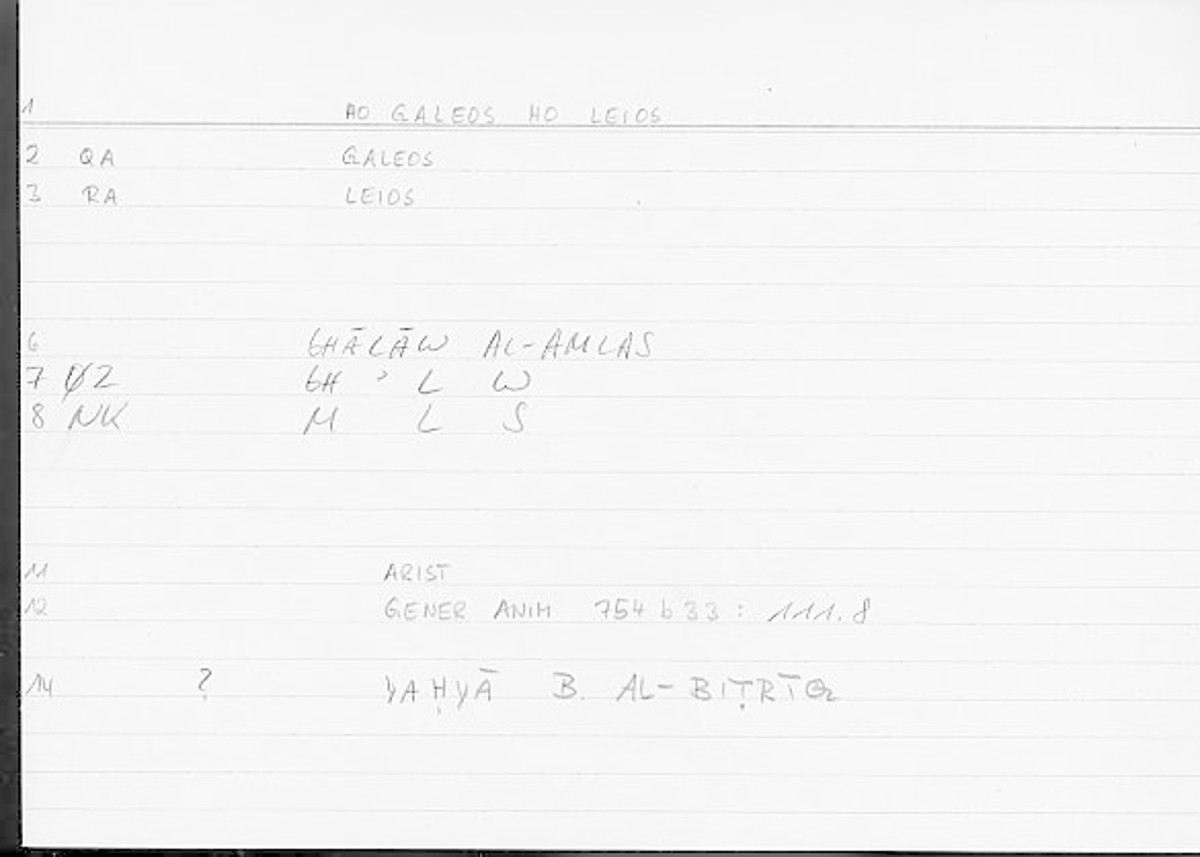 1 HO GALEOS HO LEIOS
2 QA GALEOS
3 RA LEIOS
6 GHĀLĀW AL-AMLAS
7 Ø2 GH ʾ L W
8 NK M L S
11 ARIST
12 GENER ANIM 754 b 33 : 111.8
14 ? YAḤYĀ B. AL-BIṬRĪQ